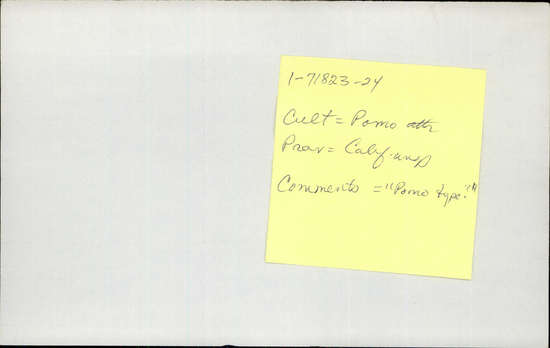 1-71823-24
Cult = Pomo attr
Prov = Calif. unsp
Comments = "Pomo type."